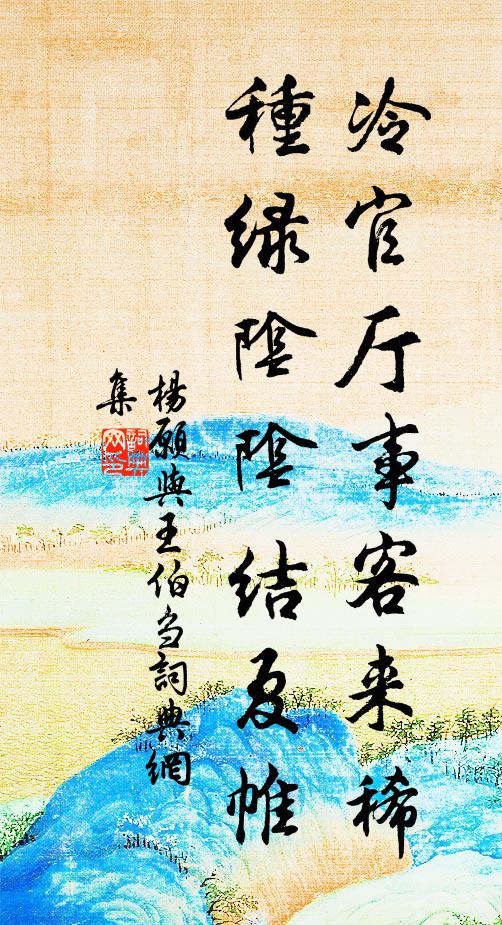 冷官厅事客来稀
種绿陰陰结夏帷
楊願與王伯芻詞典網
集